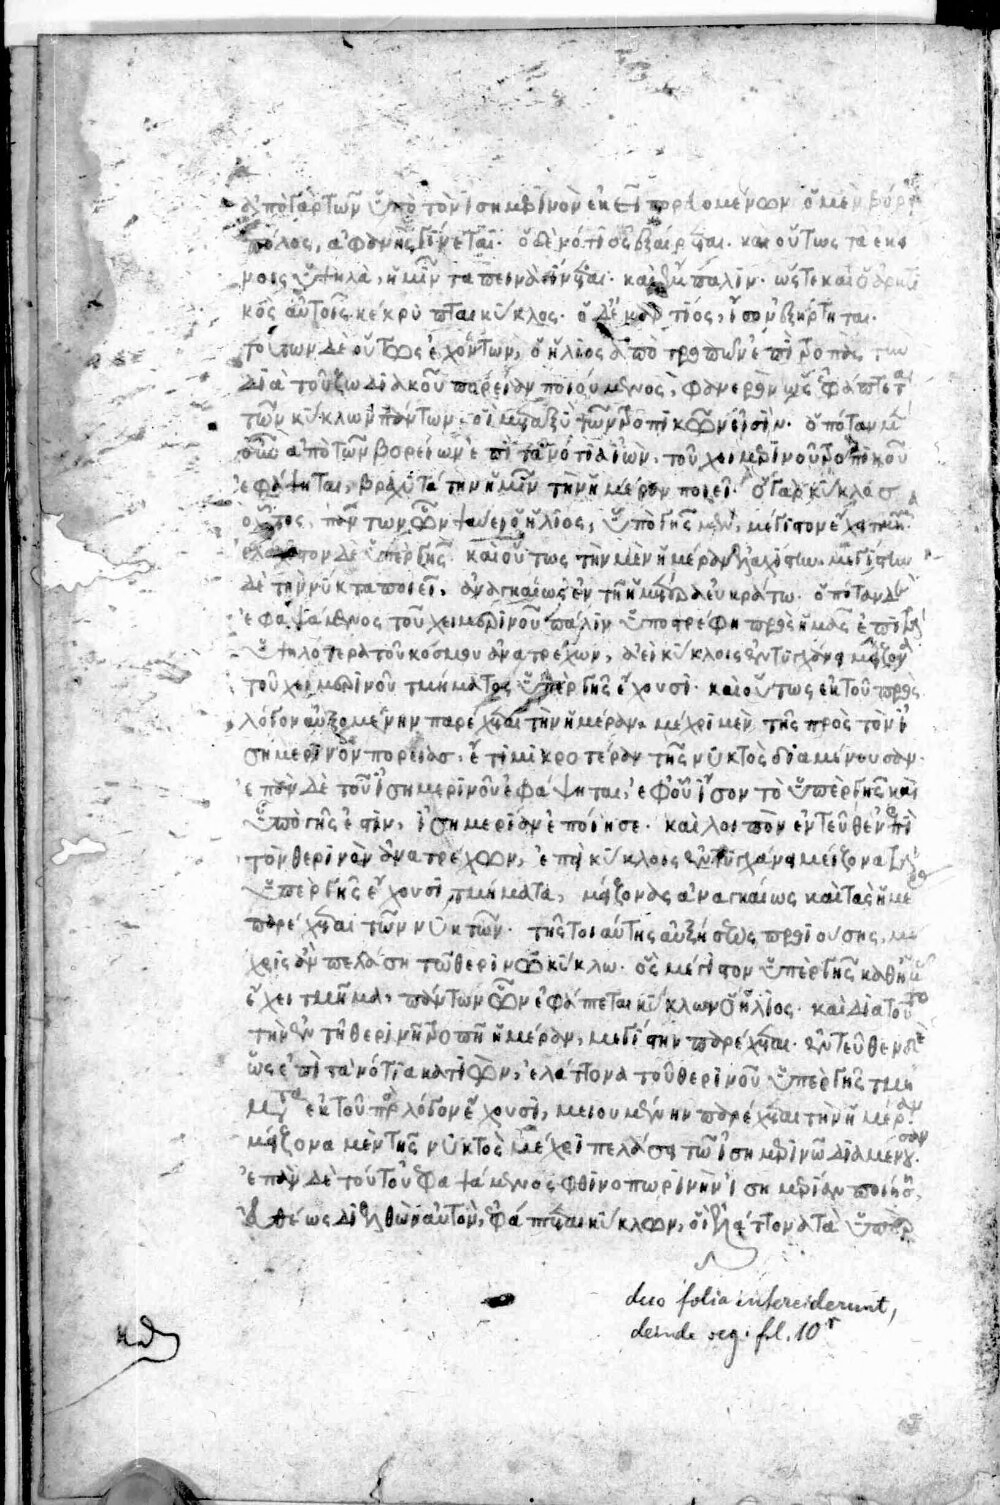 ἀπὸ γὰρ τῶν ὑπὸ τὸν ἰσημερινὸν ἐκεῖ πορευομένων ὁ μὲν βόρειος
πόλος, ἀφανὴς γίνεται. ὁ δὲ νότιος ἐξαίρεται. καὶ οὕτως τὰ ἐκεί
νοις ὑψηλὰ, ἡμῖν ταπεινὰ γίνεται. καὶ ἔμπαλιν. ὥστε καὶ ὁ ἀρκτι
κὸς αὐτοῖς κέκρυπται κύκλος. ὁ δὲ νότιος, ἴσον ἐξήρτηται.
τούτων δὲ οὕτως ἐχόντων, ὁ ἥλιος ἀπὸ τροπῶν ἐπὶ τροπὰς τὴν
διὰ τοῦ ζωδιακοῦ πορείαν ποιούμενος, φανερὸν ὡς ἐφάπτεται
τῶν κύκλων πάντων, οἳ μεταξὺ τῶν τροπικῶν εἰσὶν. ὁπόταν μὲν
οὖν ἀπὸ τῶν βορείων ἐπὶ τὰ νότια ἰὼν, τοῦ χειμερινοῦ τροπικοῦ
ἐφάψηται, βραχυτάτην ἡμῖν τὴν ἡμέραν ποιεῖ. ὁ γὰρ κύκλος
οὗτος, πάντων ὧν ψαύει ὁ ἥλιος, ὑπὸ γῆς μὲν, μέγιστον ἔχει τμῆμα
ἐλάχιστον δὲ ὑπὲρ γῆς. καὶ οὕτως τὴν μὲν ἡμέραν ἐλαχίστην. μεγίστην
δὲ τὴν νύκτα ποιεῖ, ἀναγκαίως ἐν τῇ ἡμετέρᾳ εὐκράτῳ. ὁπόταν δὲ
ἐφαψάμενος τοῦ χειμερινοῦ πάλιν ὑποστρέφῃ πρὸς ἡμᾶς ἐπὶ τὰ
ὑψηλότερα τοῦ κόσμου ἀνατρέχων, ἀεὶ κύκλοις ἐντυγχάνει μείζονα
τοῦ χειμερινοῦ τμήματος ὑπὲρ γῆς ἔχουσι. καὶ οὕτως ἐκ τοῦ πρὸς
λόγον αὐξομένην παρέχεται τὴν ἡμέραν, μέχρι μὲν τῆς πρὸς τὸν ἰ
σημερινὸν πορείας, ἔτι μικροτέραν τῆς νυκτὸς διαμένουσαν.
ἐπὰν δὲ τοῦ ἰσημερινοῦ ἐφάψηται, ἐφ' οὗ ἴσον τὸ ὑπὲρ γῆς καὶ
ὑπὸ γῆς ἐστὶν, ἰσημερίαν ἐποίησε. καὶ λοιπὸν ἐντεῦθεν ἐπὶ
τὸν θερινὸν ἀνατρέχων, ἐπεὶ κύκλοις ἐντυγχάνει μείζονα τὰ
ὑπὲρ γῆς ἔχουσι τμήματα, μείζονας ἀναγκαίως καὶ τὰς ἡμέρας
παρέχεται τῶν νυκτῶν. τῆς τοιαύτης αὐξήσεως προιούσης, μέ
χρις ἂν πελάσῃ τῷ θερινῷ κύκλῳ. ὃς μέγιστον ὑπὲρ γῆς καθ' ἡμᾶς
ἔχει τμῆμα, πάντων ὧν ἐφάπτεται κύκλων ὁ ἥλιος. καὶ διὰ τοῦτο
τὴν ἐν τῇ θερινῇ τροπῇ ἡμέραν, μεγίστην παρέχεται. ἐντεῦθεν δὲ
ὡς ἐπὶ τὰ νότια κατιὼν, ἐλάττονα τοῦ θερινοῦ ὑπὲρ γῆς τμή
ματα ἐκ τοῦ πρὸς λόγον ἔχουσι, μειουμένην παρέχεται τὴν ἡμέραν.
μείζονα μὲν τῆς νυκτὸς μέχρι πελάσει τῷ ἰσημερινῷ διαμένουσαν.
ἐπὰν δὲ τούτου ἐφαψάμενος φθινοπωρινὴν ἰσημερίαν ποιήσῃ,
εὐθέως διελθὼν αὐτὸν, ἐφάπτεται κύκλων, οἳ ἐλάττονα τὰ ὑπὲρ
duo folia interciderunt,
deinde seq. fol. 10r